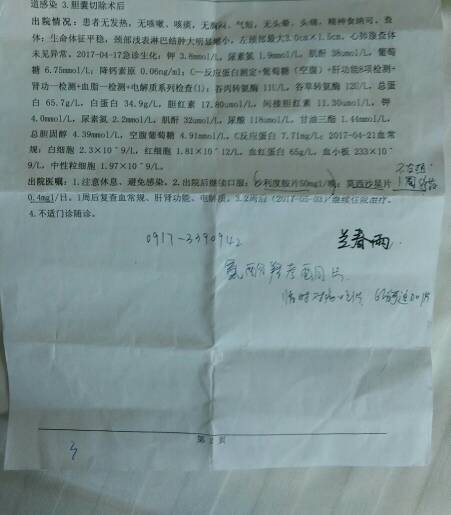 道感染 3.胆囊切除术后
出院情况：患者无发热，无咳嗽、咳痰，无胸闷、气短，无头晕、头痛，精神食纳可。查
体：生命体征平稳，颈部浅表淋巴结肿大明显缩小，左颈部最大3.0cm×1.5cm，心肺腹查体
未见异常。2017-04-17急诊生化：钾 3.8mmol/L，尿素氮 1.9mmol/L，肌酐 38umol/L，葡萄
糖 6.75mmol/L；降钙素原 0.06ng/ml；C-反应蛋白测定+葡萄糖（空腹）+肝功能8项检测+
肾功一检测+血脂一检测+电解质系列检查(1)：谷丙转氨酶 11U/L，谷草转氨酶 12U/L，总蛋
白 65.7g/L，白蛋白 34.9g/L，胆红素 17.80umol/L，间接胆红素 11.30umol/L，钾
4.0mmol/L，尿素氮 2.2mmol/L，肌酐 32umol/L，尿酸 118umol/L，甘油三酯 1.44mmol/L，
总胆固醇 4.39mmol/L，空腹葡萄糖 4.91mmol/L，C反应蛋白 7.71mg/L；2017-04-21血常
规：白细胞 2.3×10^9/L，红细胞 1.81×10^12/L，血红蛋白 65g/L，血小板 233×10^
9/L，中性粒细胞 1.97×10^9/L。
出院医嘱：1.注意休息、避免感染。2.出院后继续口服：沙利度胺片50mg1/晚；莫西沙星片
0.4mg1/日。1周后复查血常规、肝肾功能、电解质。3.2周后（2017-05-03）继续住院治疗。
4.不适门诊随诊。
0917-3390942
兰春雨
氨酚羟考酮片
临时对症口服
第 2 页
3